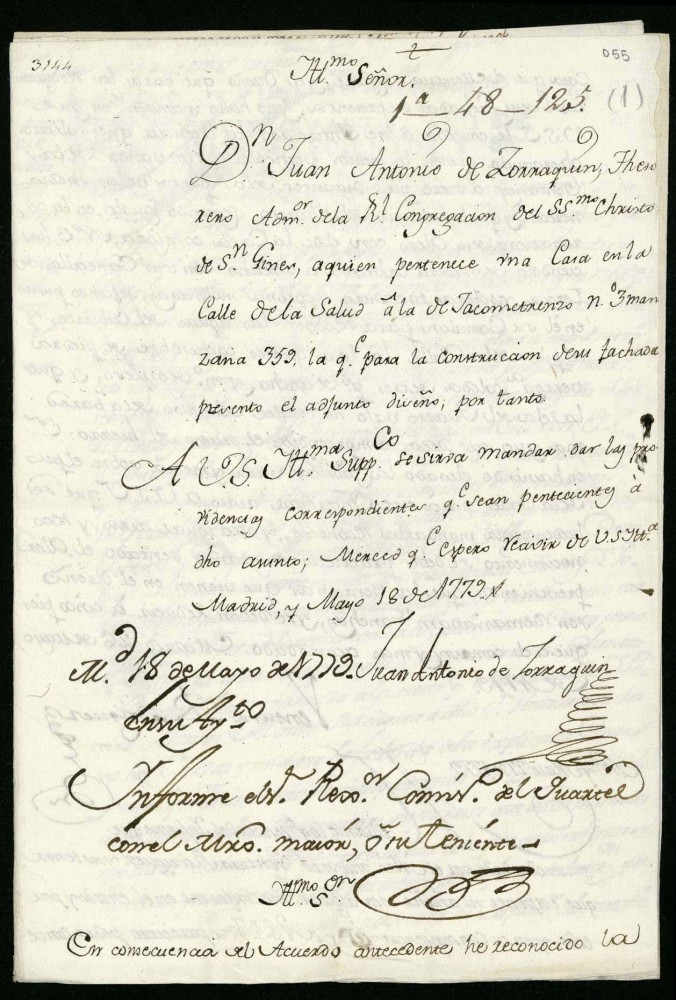 3144
055
Ill.mo Señor.
1a 48 125.
(1)
Dn Juan Antonio de Zorraquin, Theso
rero Admor. de la Rl Congregacion del SSmo Christo
de Sn Gines, a quien pertenece vna Casa en la
Calle de la Salud â la de Jacometrenzo no. 3 man
zana 359. la qe. para la construccion de su fachada
presento el adjunto diseño; por tanto
A V.S. Illma Suppco se sirva mandar dar las pro
videncias correspondientes qe. sean pertecientes â
dho asunto; Merced qe. espero recivir de V.S. Illma.
Madrid, y Mayo 18 de 1779.
Juan Antonio de Zorraquin
Md. 18 de Mayo de 1779.
En su Ayto
Informe el Sr. Rexor. Comisso. del Quartel
con el Mro. maior, ò su Teniente
Illmo Sor
En consecuencia del Acuerdo antecedente he reconocido la